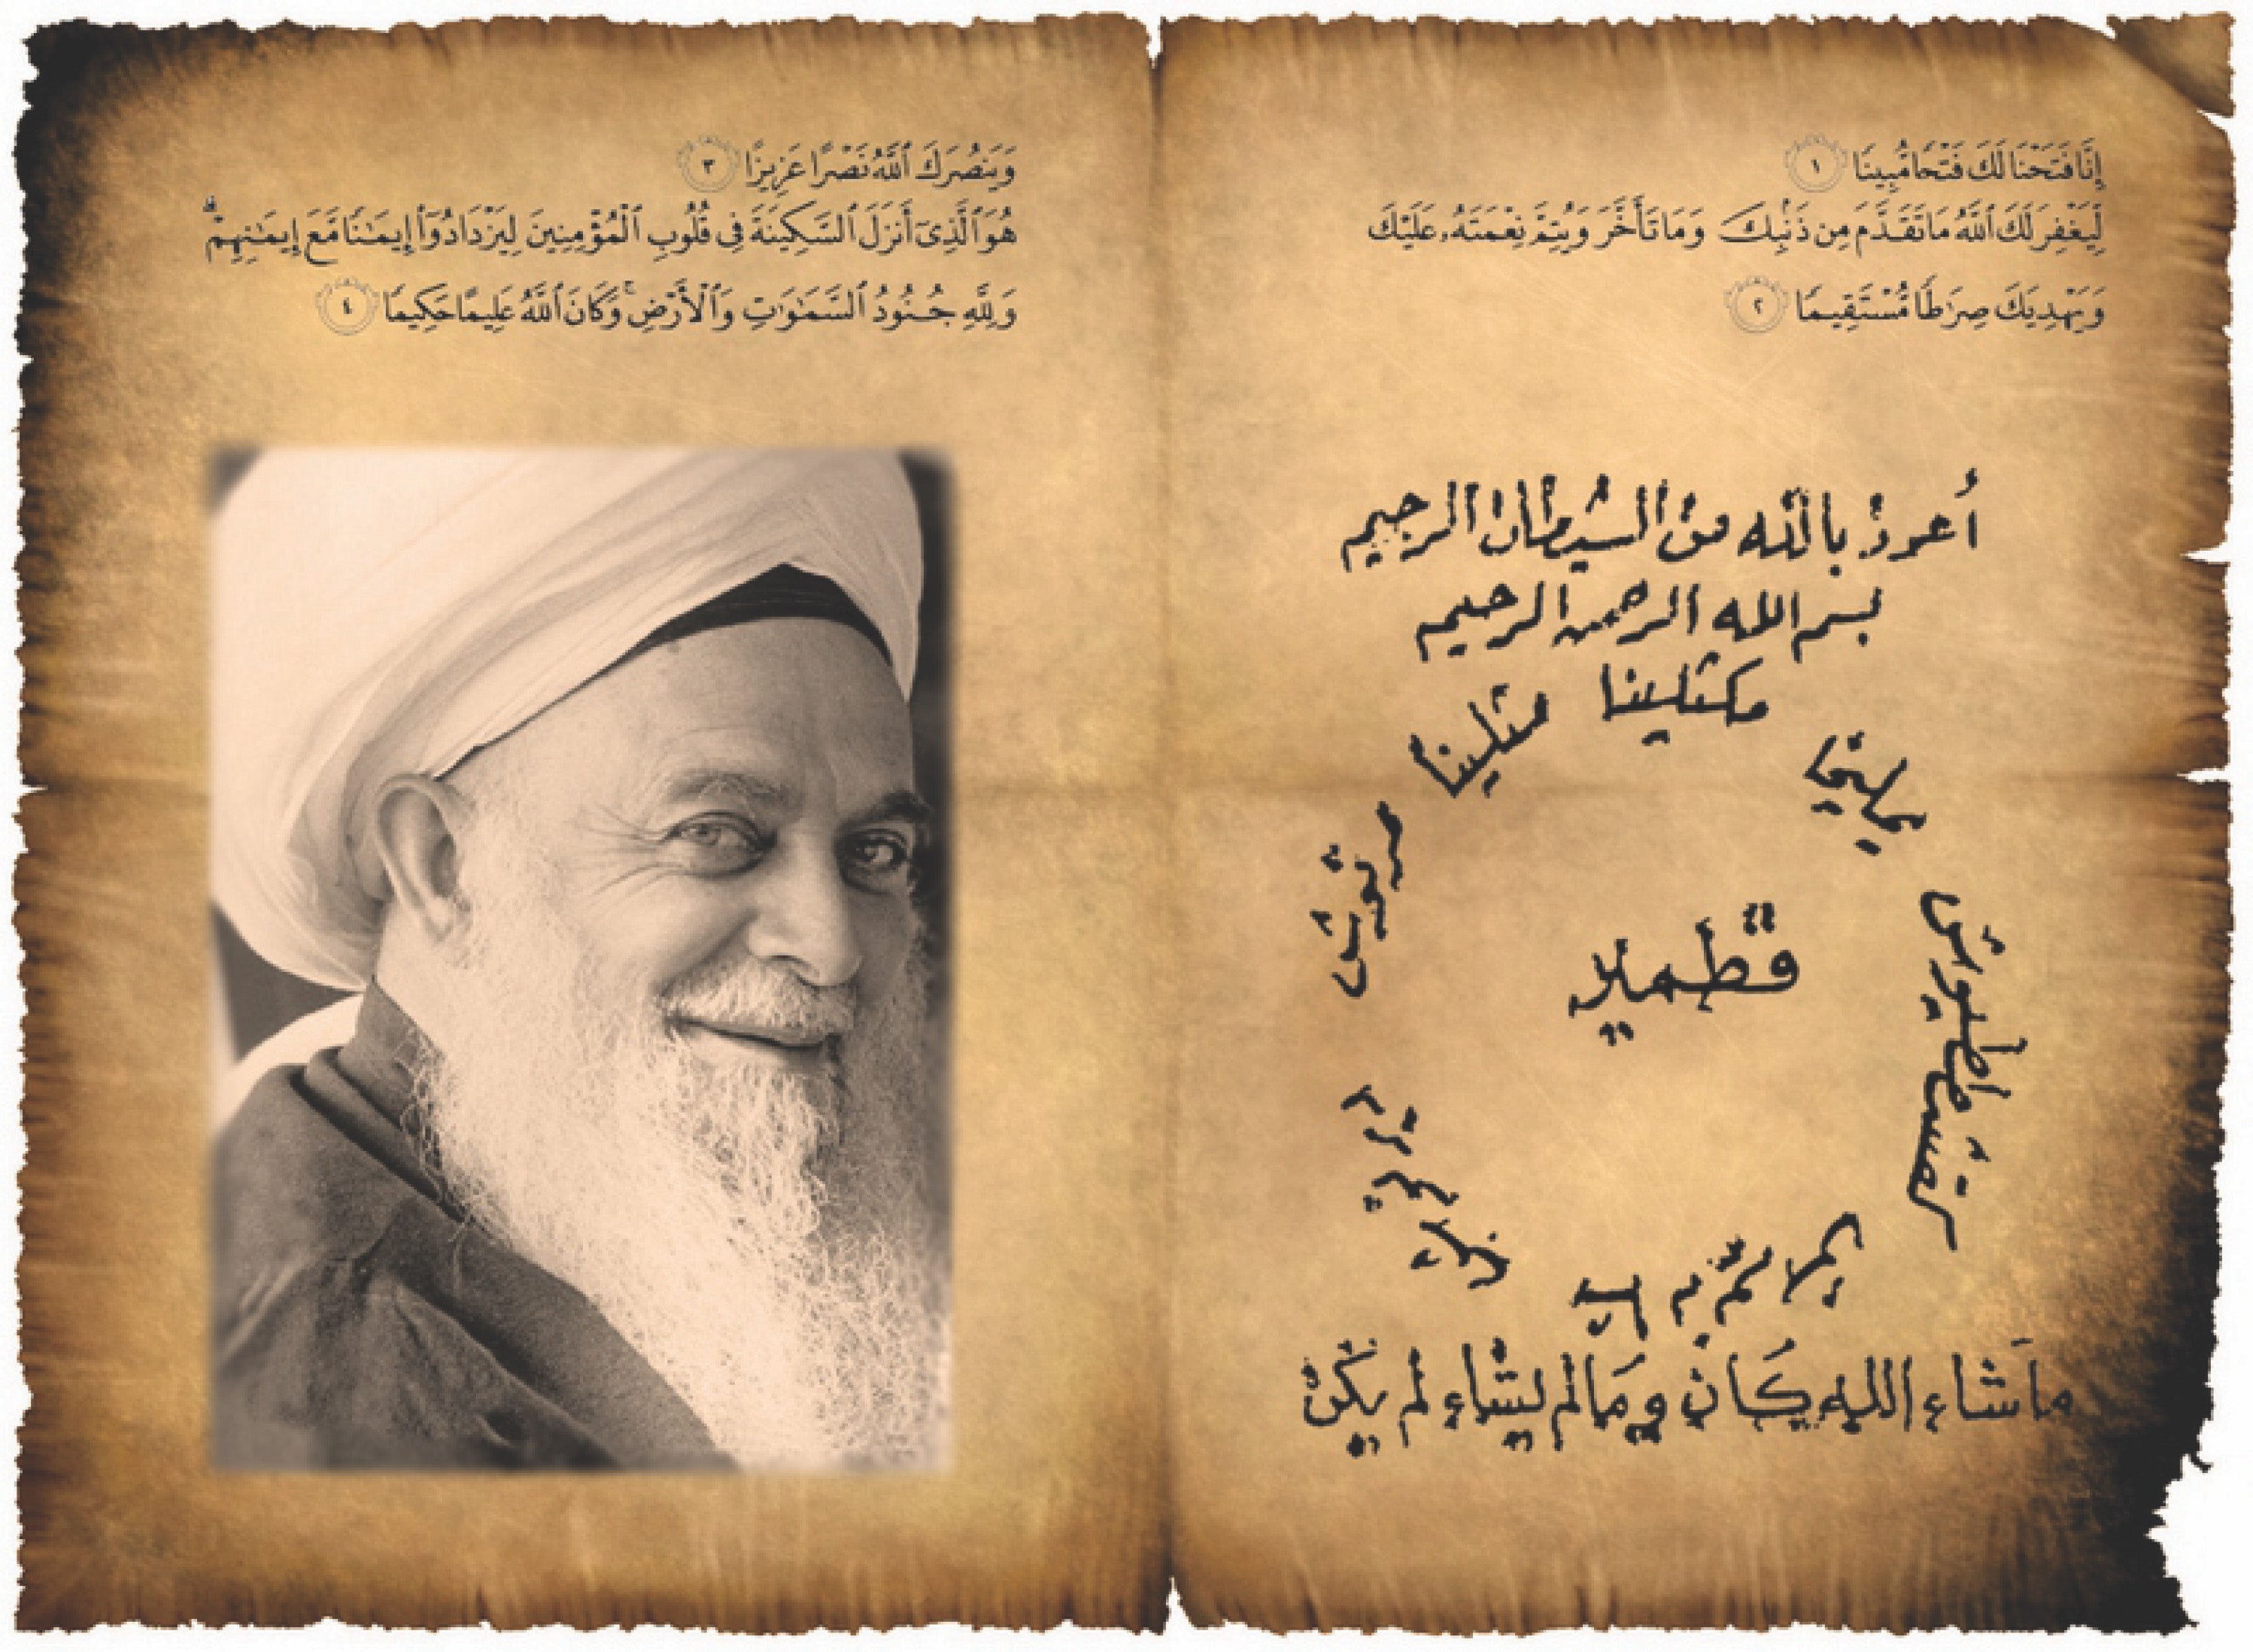 إِنَّا فَتَحْنَا لَكَ فَتْحًا مُّبِينًا ١
لِّيَغْفِرَ لَكَ ٱللَّهُ مَا تَقَدَّمَ مِن ذَنۢبِكَ وَمَا تَأَخَّرَ وَيُتِمَّ نِعْمَتَهُۥ عَلَيْكَ
وَيَهْدِيَكَ صِرَٰطًا مُّسْتَقِيمًا ٢
وَيَنصُرَكَ ٱللَّهُ نَصْرًا عَزِيزًا ٣
هُوَ ٱلَّذِىٓ أَنزَلَ ٱلسَّكِينَةَ فِى قُلُوبِ ٱلْمُؤْمِنِينَ لِيَزْدَادُوٓا۟ إِيمَٰنًا مَّعَ إِيمَٰنِهِمْ ۗ
وَلِلَّهِ جُنُودُ ٱلسَّمَٰوَٰتِ وَٱلْأَرْضِ ۚ وَكَانَ ٱللَّهُ عَلِيمًا حَكِيمًا ٤
أعوذ بالله من الشيطان الرجيم
بسم الله الرحمن الرحيم
يمليخا
مكثلينا
مثلينا
مرنوش
قطمير
ما شاء الله كان وما لم يشاء لم يكن